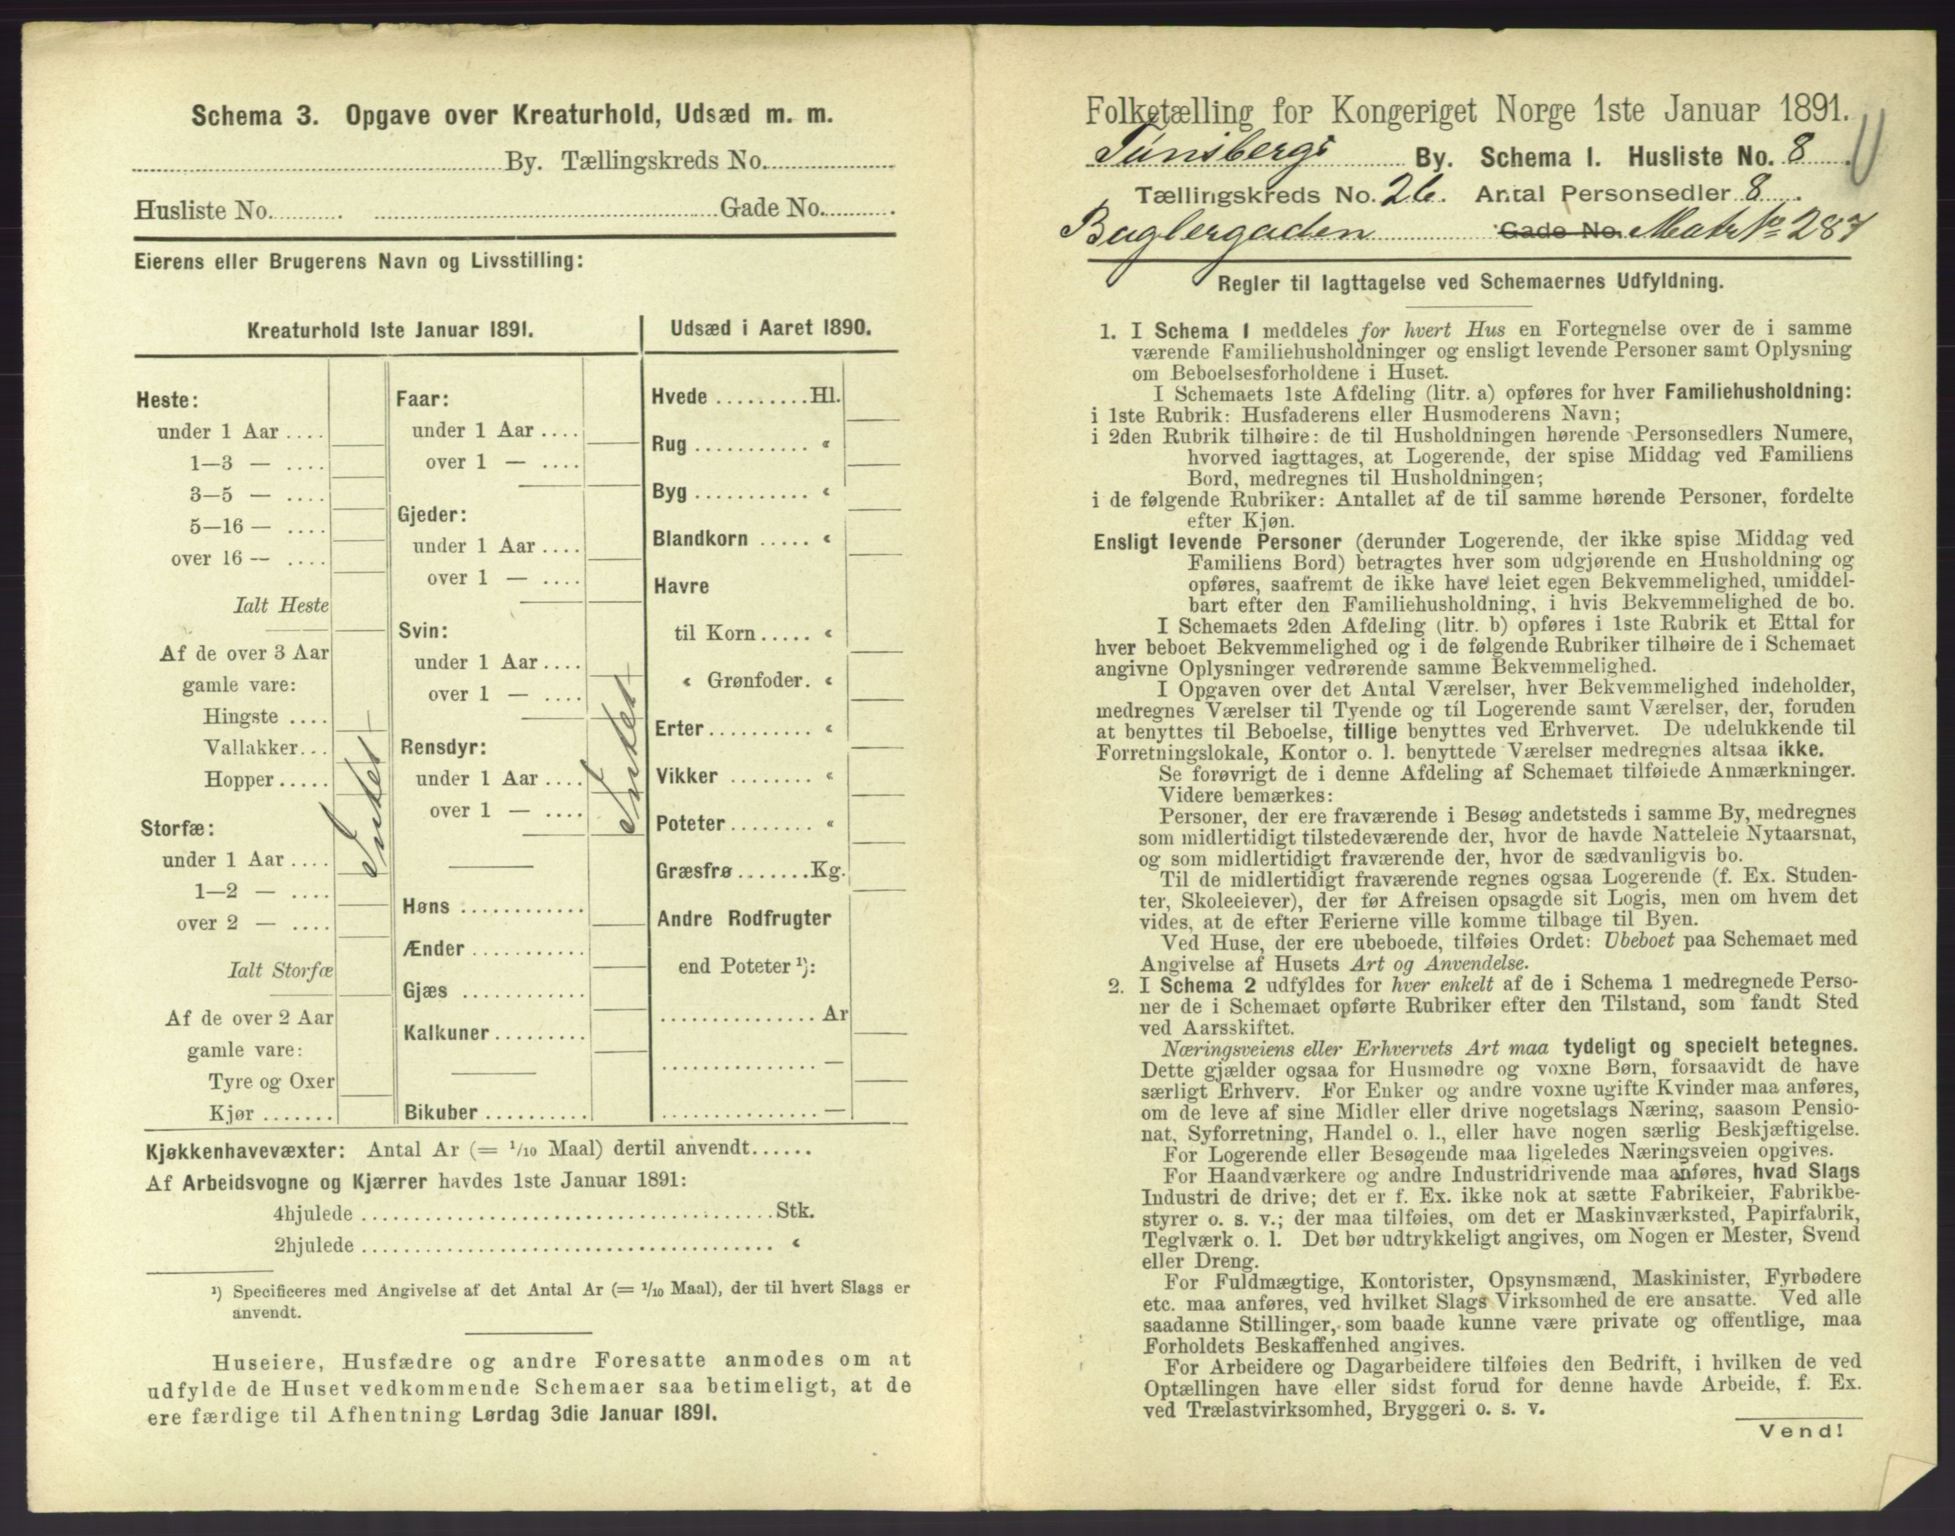 Schema 3. Opgave over Kreaturhold, Udsæd m. m.
By. Tællingskreds No.
Husliste No. Gade No.
Eierens eller Brugerens Navn og Livsstilling:
Kreaturhold 1ste Januar 1891.
Heste:
under 1 Aar ....
1—3 — ....
3—5 — ....
5—16 — ....
over 16 — ....
Ialt Heste
Af de over 3 Aar
gamle vare:
Hingste ....
Vallakker...
Hopper .....
Storfæ:
under 1 Aar ....
1—2 — ....
over 2 — ....
Ialt Storfæ
Af de over 2 Aar
gamle vare:
Tyre og Oxer
Kjør .......
Intet
Faar:
under 1 Aar ....
over 1 — ....
Gjeder:
under 1 Aar ....
over 1 — ....
Svin:
under 1 Aar ....
over 1 — ....
Rensdyr:
under 1 Aar ....
over 1 — ....
Høns ............
Ænder ...........
Gjæs ............
Kalkuner .........
Bikuber ..........
Intet
Udsæd i Aaret 1890.
Hvede .........Hl.
Rug ........... «
Byg ........... «
Blandkorn ..... «
Havre
til Korn ..... «
« Grønfoder. «
Erter .......... «
Vikker ........ «
Poteter ........ «
Græsfrø .......Kg.
Andre Rodfrugter
end Poteter ¹):
............... Ar
............... —
............... —
Kjøkkenhavevæxter: Antal Ar (= 1/10 Maal) dertil anvendt......
Af Arbeidsvogne og Kjærrer havdes 1ste Januar 1891:
4hjulede ........................................ Stk.
2hjulede ........................................ «
¹) Specificeres med Angivelse af det Antal Ar (= 1/10 Maal), der til hvert Slags er
anvendt.
Huseiere, Husfædre og andre Foresatte anmodes om at
udfylde de Huset vedkommende Schemaer saa betimeligt, at de
ere færdige til Afhentning Lørdag 3die Januar 1891.
Folketælling for Kongeriget Norge 1ste Januar 1891.
Tünsbergs By. Schema 1. Husliste No. 8
Tællingskreds No. 26. Antal Personsedler 8
Baglergaden Gade No. Matr No 287
Regler til Iagttagelse ved Schemaernes Udfyldning.
1. I Schema 1 meddeles for hvert Hus en Fortegnelse over de i samme
værende Familiehusholdninger og ensligt levende Personer samt Oplysning
om Beboelsesforholdene i Huset.
I Schemaets 1ste Afdeling (litr. a) opføres for hver Familiehusholdning:
i 1ste Rubrik: Husfaderens eller Husmoderens Navn;
i 2den Rubrik tilhøire: de til Husholdningen hørende Personsedlers Numere,
hvorved iagttages, at Logerende, der spise Middag ved Familiens
Bord, medregnes til Husholdningen;
i de følgende Rubriker: Antallet af de til samme hørende Personer, fordelte
efter Kjøn.
Ensligt levende Personer (derunder Logerende, der ikke spise Middag ved
Familiens Bord) betragtes hver som udgjørende en Husholdning og
opføres, saafremt de ikke have leiet egen Bekvemmelighed, umiddel-
bart efter den Familiehusholdning, i hvis Bekvemmelighed de bo.
I Schemaets 2den Afdeling (litr. b) opføres i 1ste Rubrik et Ettal for
hver beboet Bekvemmelighed og i de følgende Rubriker tilhøire de i Schemaet
angivne Oplysninger vedrørende samme Bekvemmelighed.
I Opgaven over det Antal Værelser, hver Bekvemmelighed indeholder,
medregnes Værelser til Tyende og til Logerende samt Værelser, der, foruden
at benyttes til Beboelse, tillige benyttes ved Erhvervet. De udelukkende til
Forretningslokale, Kontor o. l. benyttede Værelser medregnes altsaa ikke.
Se forøvrigt de i denne Afdeling af Schemaet tilføiede Anmærkninger.
Videre bemærkes:
Personer, der ere fraværende i Besøg andetsteds i samme By, medregnes
som midlertidigt tilstedeværende der, hvor de havde Natteleie Nytaarsnat,
og som midlertidigt fraværende der, hvor de sædvanligvis bo.
Til de midlertidigt fraværende regnes ogsaa Logerende (f. Ex. Studen-
ter, Skoleeiever), der før Afreisen opsagde sit Logis, men om hvem det
vides, at de efter Ferierne ville komme tilbage til Byen.
Ved Huse, der ere ubeboede, tilføies Ordet: Ubeboet paa Schemaet med
Angivelse af Husets Art og Anvendelse.
2. I Schema 2 udfyldes for hver enkelt af de i Schema 1 medregnede Perso-
ner de i Schemaet opførte Rubriker efter den Tilstand, som fandt Sted
ved Aarsskiftet.
Næringsveiens eller Erhvervets Art maa tydeligt og specielt betegnes.
Dette gjælder ogsaa for Husmødre og voxne Børn, forsaavidt de have
særligt Erhverv. For Enker og andre voxne ugifte Kvinder maa anføres,
om de leve af sine Midler eller drive nogetslags Næring, saasom Pensio-
nat, Syforretning, Handel o. l., eller have nogen særlig Beskjæftigelse.
For Logerende eller Besøgende maa ligeledes Næringsveien opgives.
For Haandværkere og andre Industridrivende maa anføres, hvad Slags
Industri de drive; det er f. Ex. ikke nok at sætte Fabrikeier, Fabrikbe-
styrer o. s. v.; der maa tilføies, om det er Maskinværksted, Papirfabrik,
Teglværk o. l. Det bør udtrykkeligt angives, om Nogen er Mester, Svend
eller Dreng.
For Fuldmægtige, Kontorister, Opsynsmænd, Maskinister, Fyrbødere
etc. maa anføres, ved hvilket Slags Virksomhed de ere ansatte. Ved alle
saadanne Stillinger, som baade kunne være private og offentlige, maa
Forholdets Beskaffenhed angives.
For Arbeidere og Dagarbeidere tilføies den Bedrift, i hvilken de ved
Optællingen have eller sidst forud for denne havde Arbeide, f. Ex.
ved Trælastvirksomhed, Bryggeri o. s. v.
Vend!